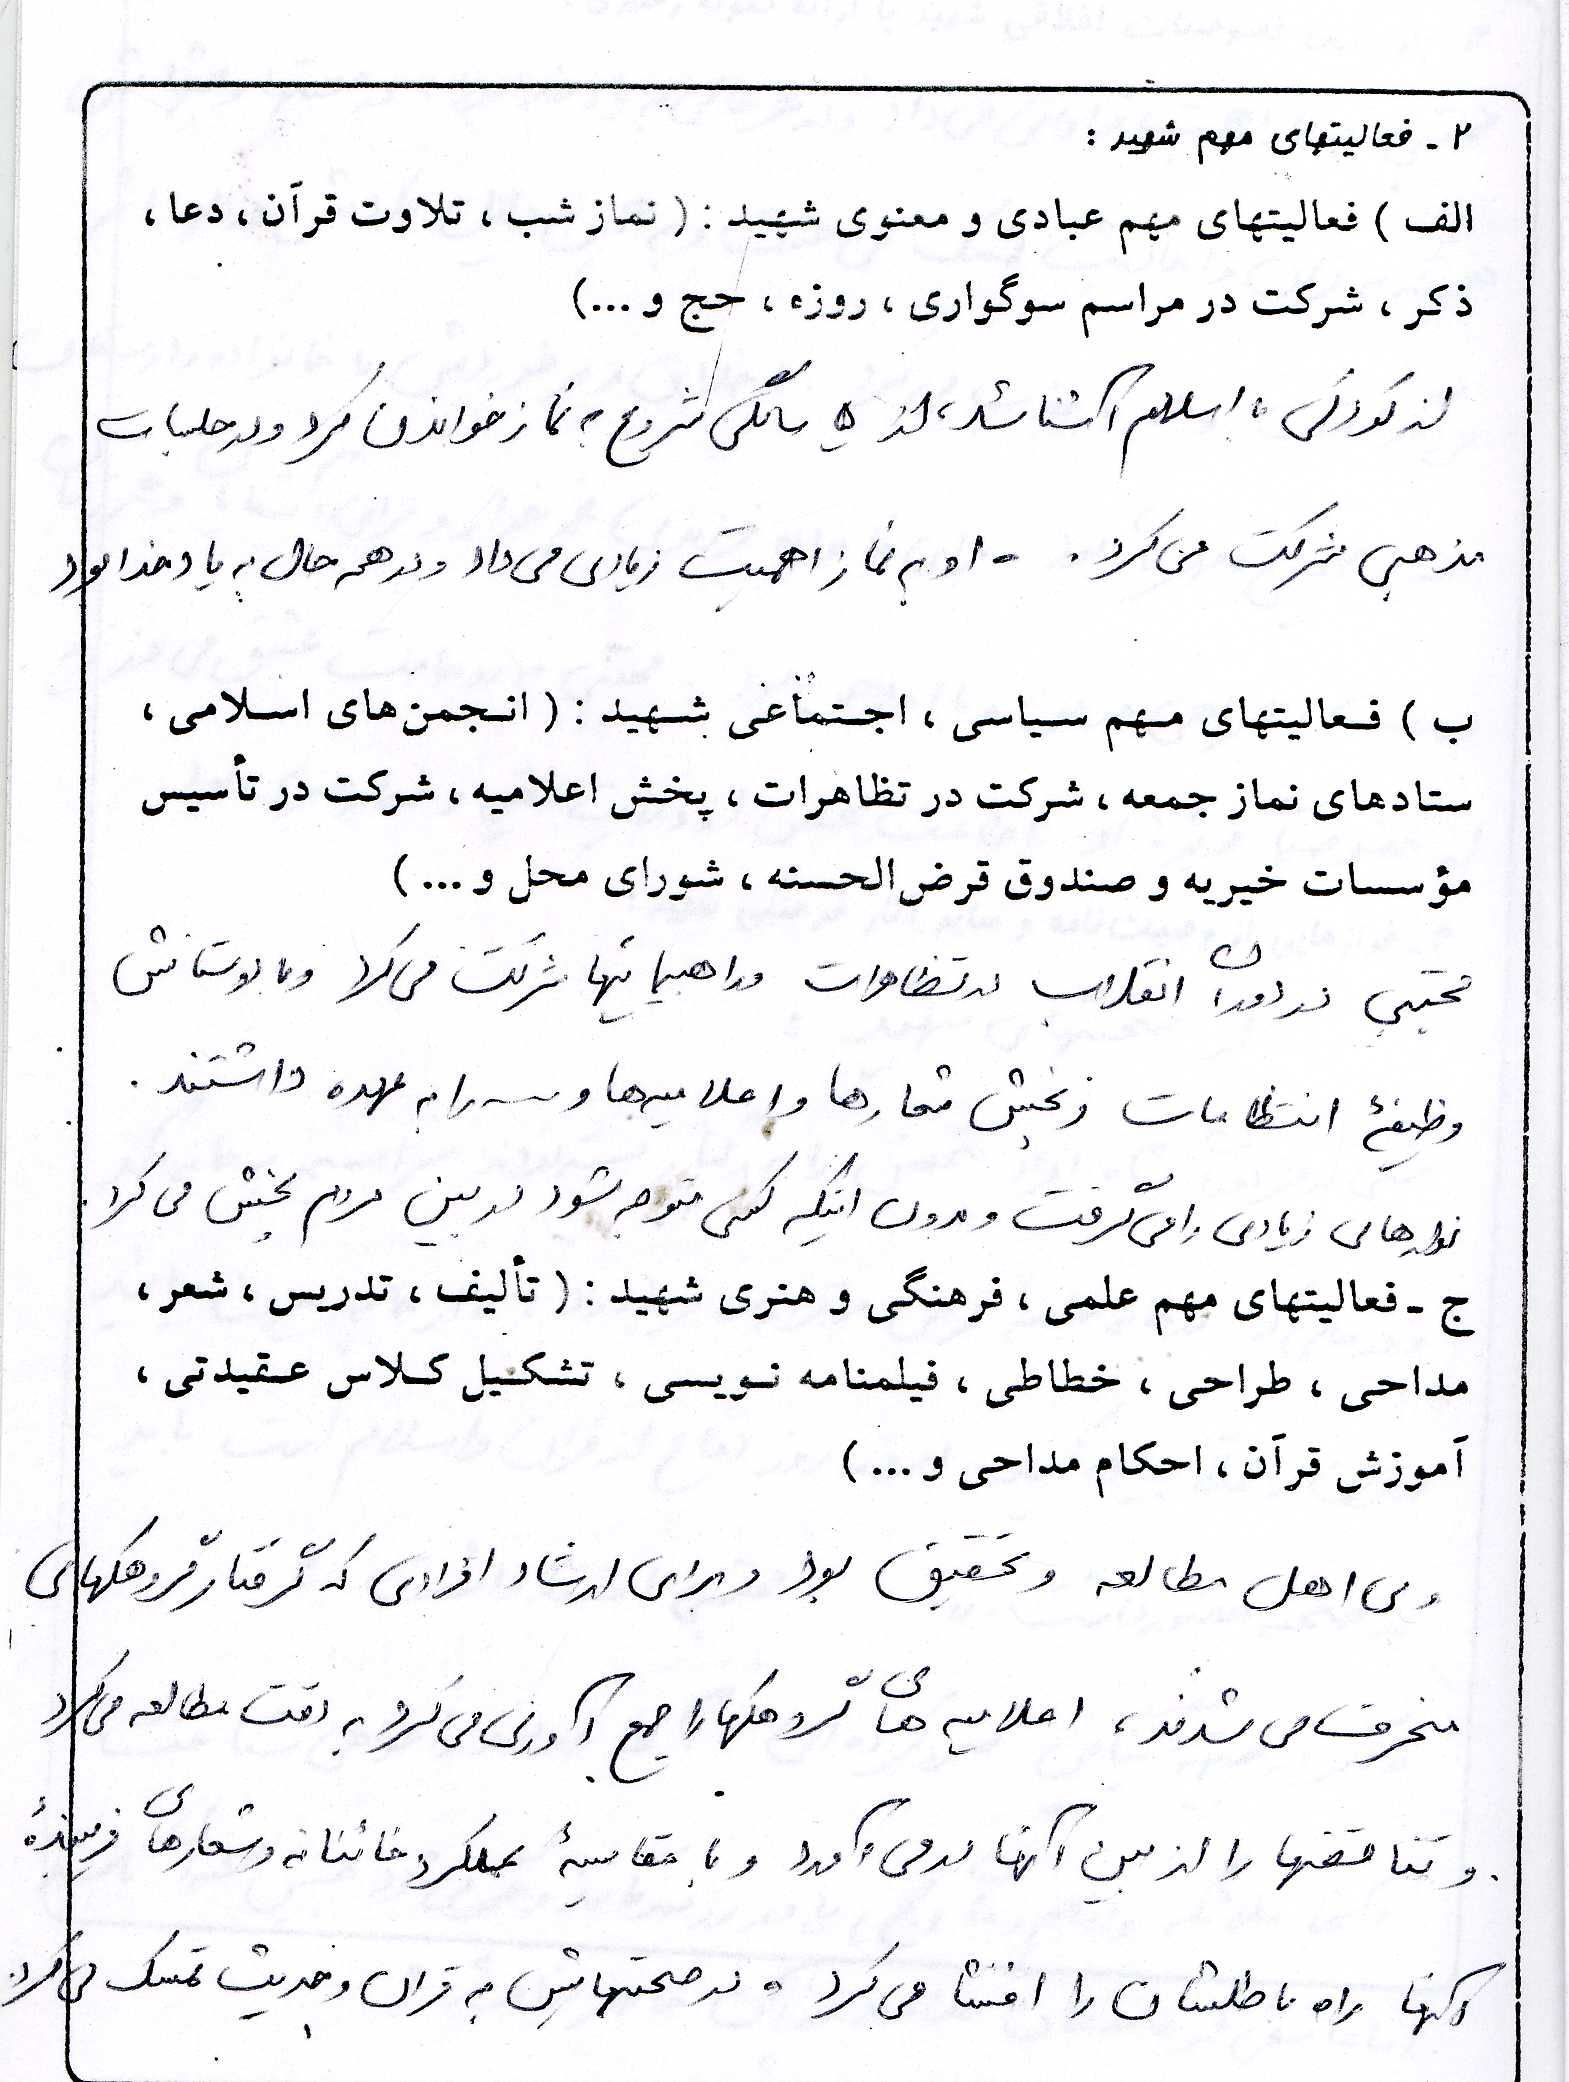 ۲ - فعالیتهای مهم شهید :
الف ) فعالیتهای مهم عبادی و معنوی شهید : ( نماز شب ، تلاوت قرآن ، دعا ،
ذکر ، شرکت در مراسم سوگواری ، روزه ، حج و ...)
از کودکی با اسلام آشنا شد ، از ۵ سالگی شروع به نماز خواندن کرد و در جلسات
مذهبی شرکت می کرد . او به نماز اهمیت زیادی می داد و در همه حال به یاد خدا بود
ب ) فعالیتهای مهم سیاسی ، اجتماعی شهید : ( انجمن های اسلامی ،
ستادهای نماز جمعه ، شرکت در تظاهرات ، پخش اعلامیه ، شرکت در تأسیس
مؤسسات خیریه و صندوق قرض الحسنه ، شورای محل و ... )
مجتبی در دوران انقلاب در تظاهرات و راهپیمائیها شرکت می کرد و با دوستانش
وظیفهٔ انتظامات و پخش شعارها و اعلامیه ها و ... را به عهده داشتند .
نوارهای زیادی را می گرفت و بدون اینکه کسی متوجه شود در بین مردم پخش می کرد .
ج - فعالیتهای مهم علمی ، فرهنگی و هنری شهید : ( تألیف ، تدریس ، شعر ،
مداحی ، طراحی ، خطاطی ، فیلمنامه نویسی ، تشکیل کلاس عقیدتی ،
آموزش قرآن ، احکام مداحی و ... )
وی اهل مطالعه و تحقیق بود و برای ارشاد افرادی که گرفتار گروهکهای
منحرف می شدند ، اعلامیه های گروهکها را جمع آوری می کرد به دقت مطالعه می کرد
و تناقضها را از بین آنها در می آورد و با مقایسهٔ عملکرد خائنانه و شعارهای فریبندهٔ
آنها راه باطلشان را افشا می کرد و در صحبتهایش به قرآن و حدیث تمسک می کرد .